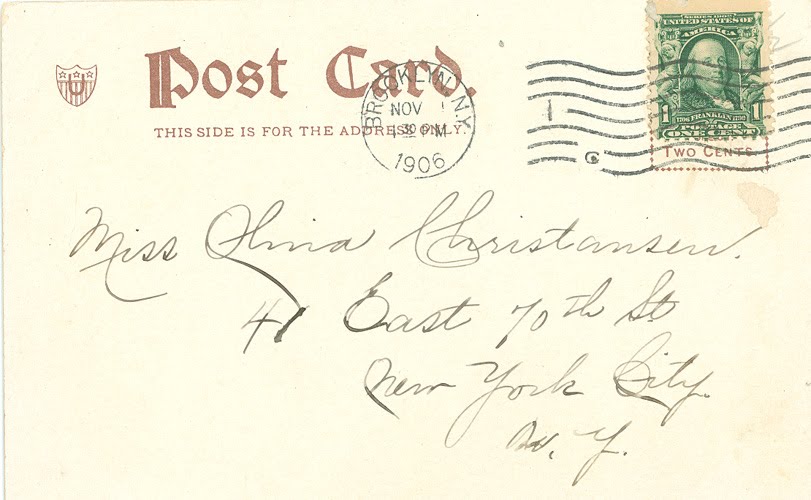 Post Card.
THIS SIDE IS FOR THE ADDRESS ONLY.
BROOKLYN, N.Y.
NOV
1 30 PM
1906
SERIES 1902
UNITED STATES OF
AMERICA
1 1
1706 FRANKLIN 1790
POSTAGE
ONE CENT
TWO CENTS
Miss Christiansen.
41 East 70th St
New York City.
N. Y.